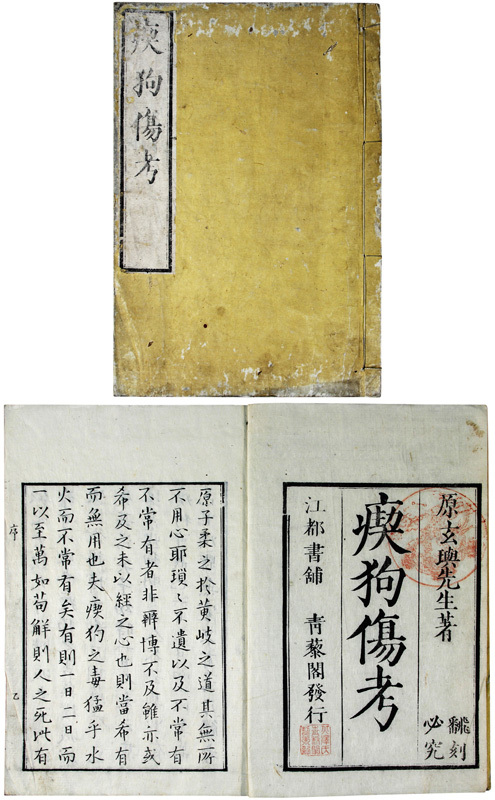 瘈狗傷考
原玄與先生著
瘈狗傷考
江都書舗　靑藜閣發行
飜刻
必究
原子柔之於黃岐之道其無所
不用心耶瑣〻不遺以及不常有
不常有者非辨博不及雖亦或
希及之未以經之心也則當希有
而無用也夫瘈狗之毒猛乎水
火而不常有矣有則一日二日而
一以至萬如苟解則人之死此有
序
乙